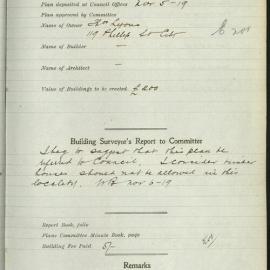 Plan deposited at Council Offices Nov 5-19
Plan approved by Committee
Name of Owner Mr Lyons
119 Phillip St City
Name of Builder —
Name of Architect —
Value of Buildings to be erected £200
Building Surveyor's Report to Committee
I beg to suggest that this plan be
refused to Council. I consider
houses should not be allowed in this
locality. Nov 6-19
Report Book, folio
Plans Committee Minute Book, page
Building Fee Paid 5/-
Remarks